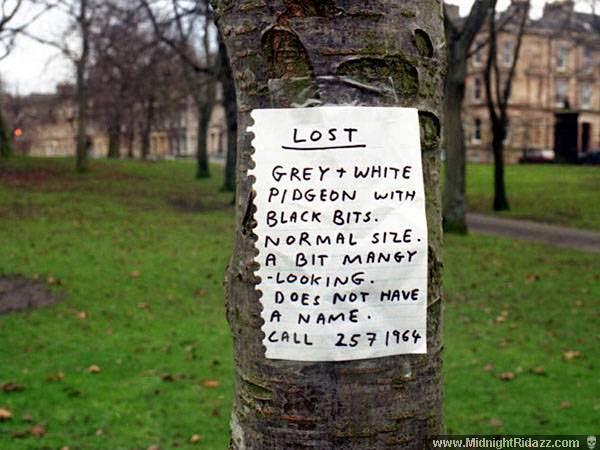 LOST
GREY + WHITE
PIDGEON WITH
BLACK BITS.
NORMAL SIZE.
A BIT MANGY
-LOOKING.
DOES NOT HAVE
A NAME.
CALL 257 1964
www.MidnightRidazz.com